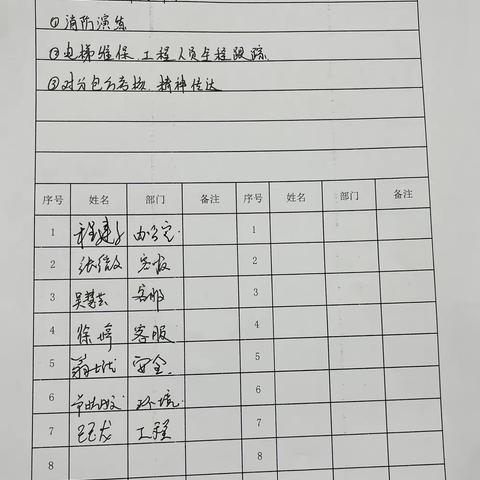 ①消防演练
②电梯维保、工程人员全程跟踪
③对分包方考核、精神传达
序号 姓名 部门 备注 序号 姓名 部门 备注
1 办公室 1
2 客服 2
3 吴慧芸 客服 3
4 徐婷 客服 4
5 安全 5
6 环境 6
7 工程 7
8 8